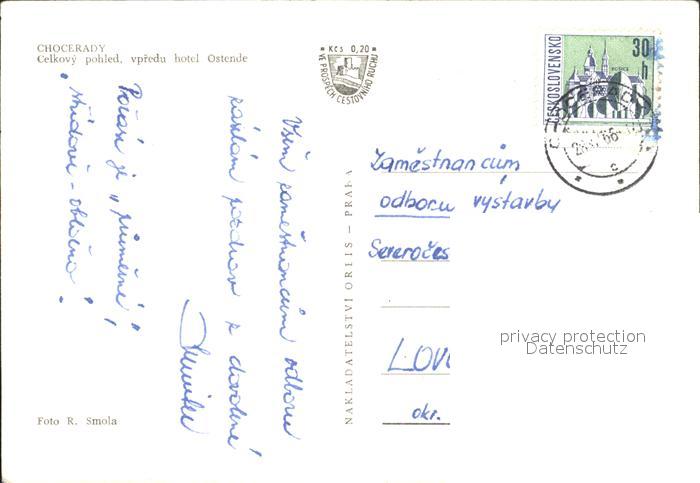 CHOCERADY
Celkový pohled, vpředu hotel Ostende
* Kčs 0,20 *
VE PROSPĚCH CESTOVNÍHO RUCHU
ČESKOSLOVENSKO
30
h
Všem zaměstnancům odboru
zasílám pozdrav z dovolené
Počasí je „průměrné"!
středově - oblačno!
NAKLADATELSTVÍ ORBIS - PRAHA
Zaměstnancům
odboru výstavby
Severočes
LOV
okr.
privacy protection
Datenschutz
Foto R. Smola